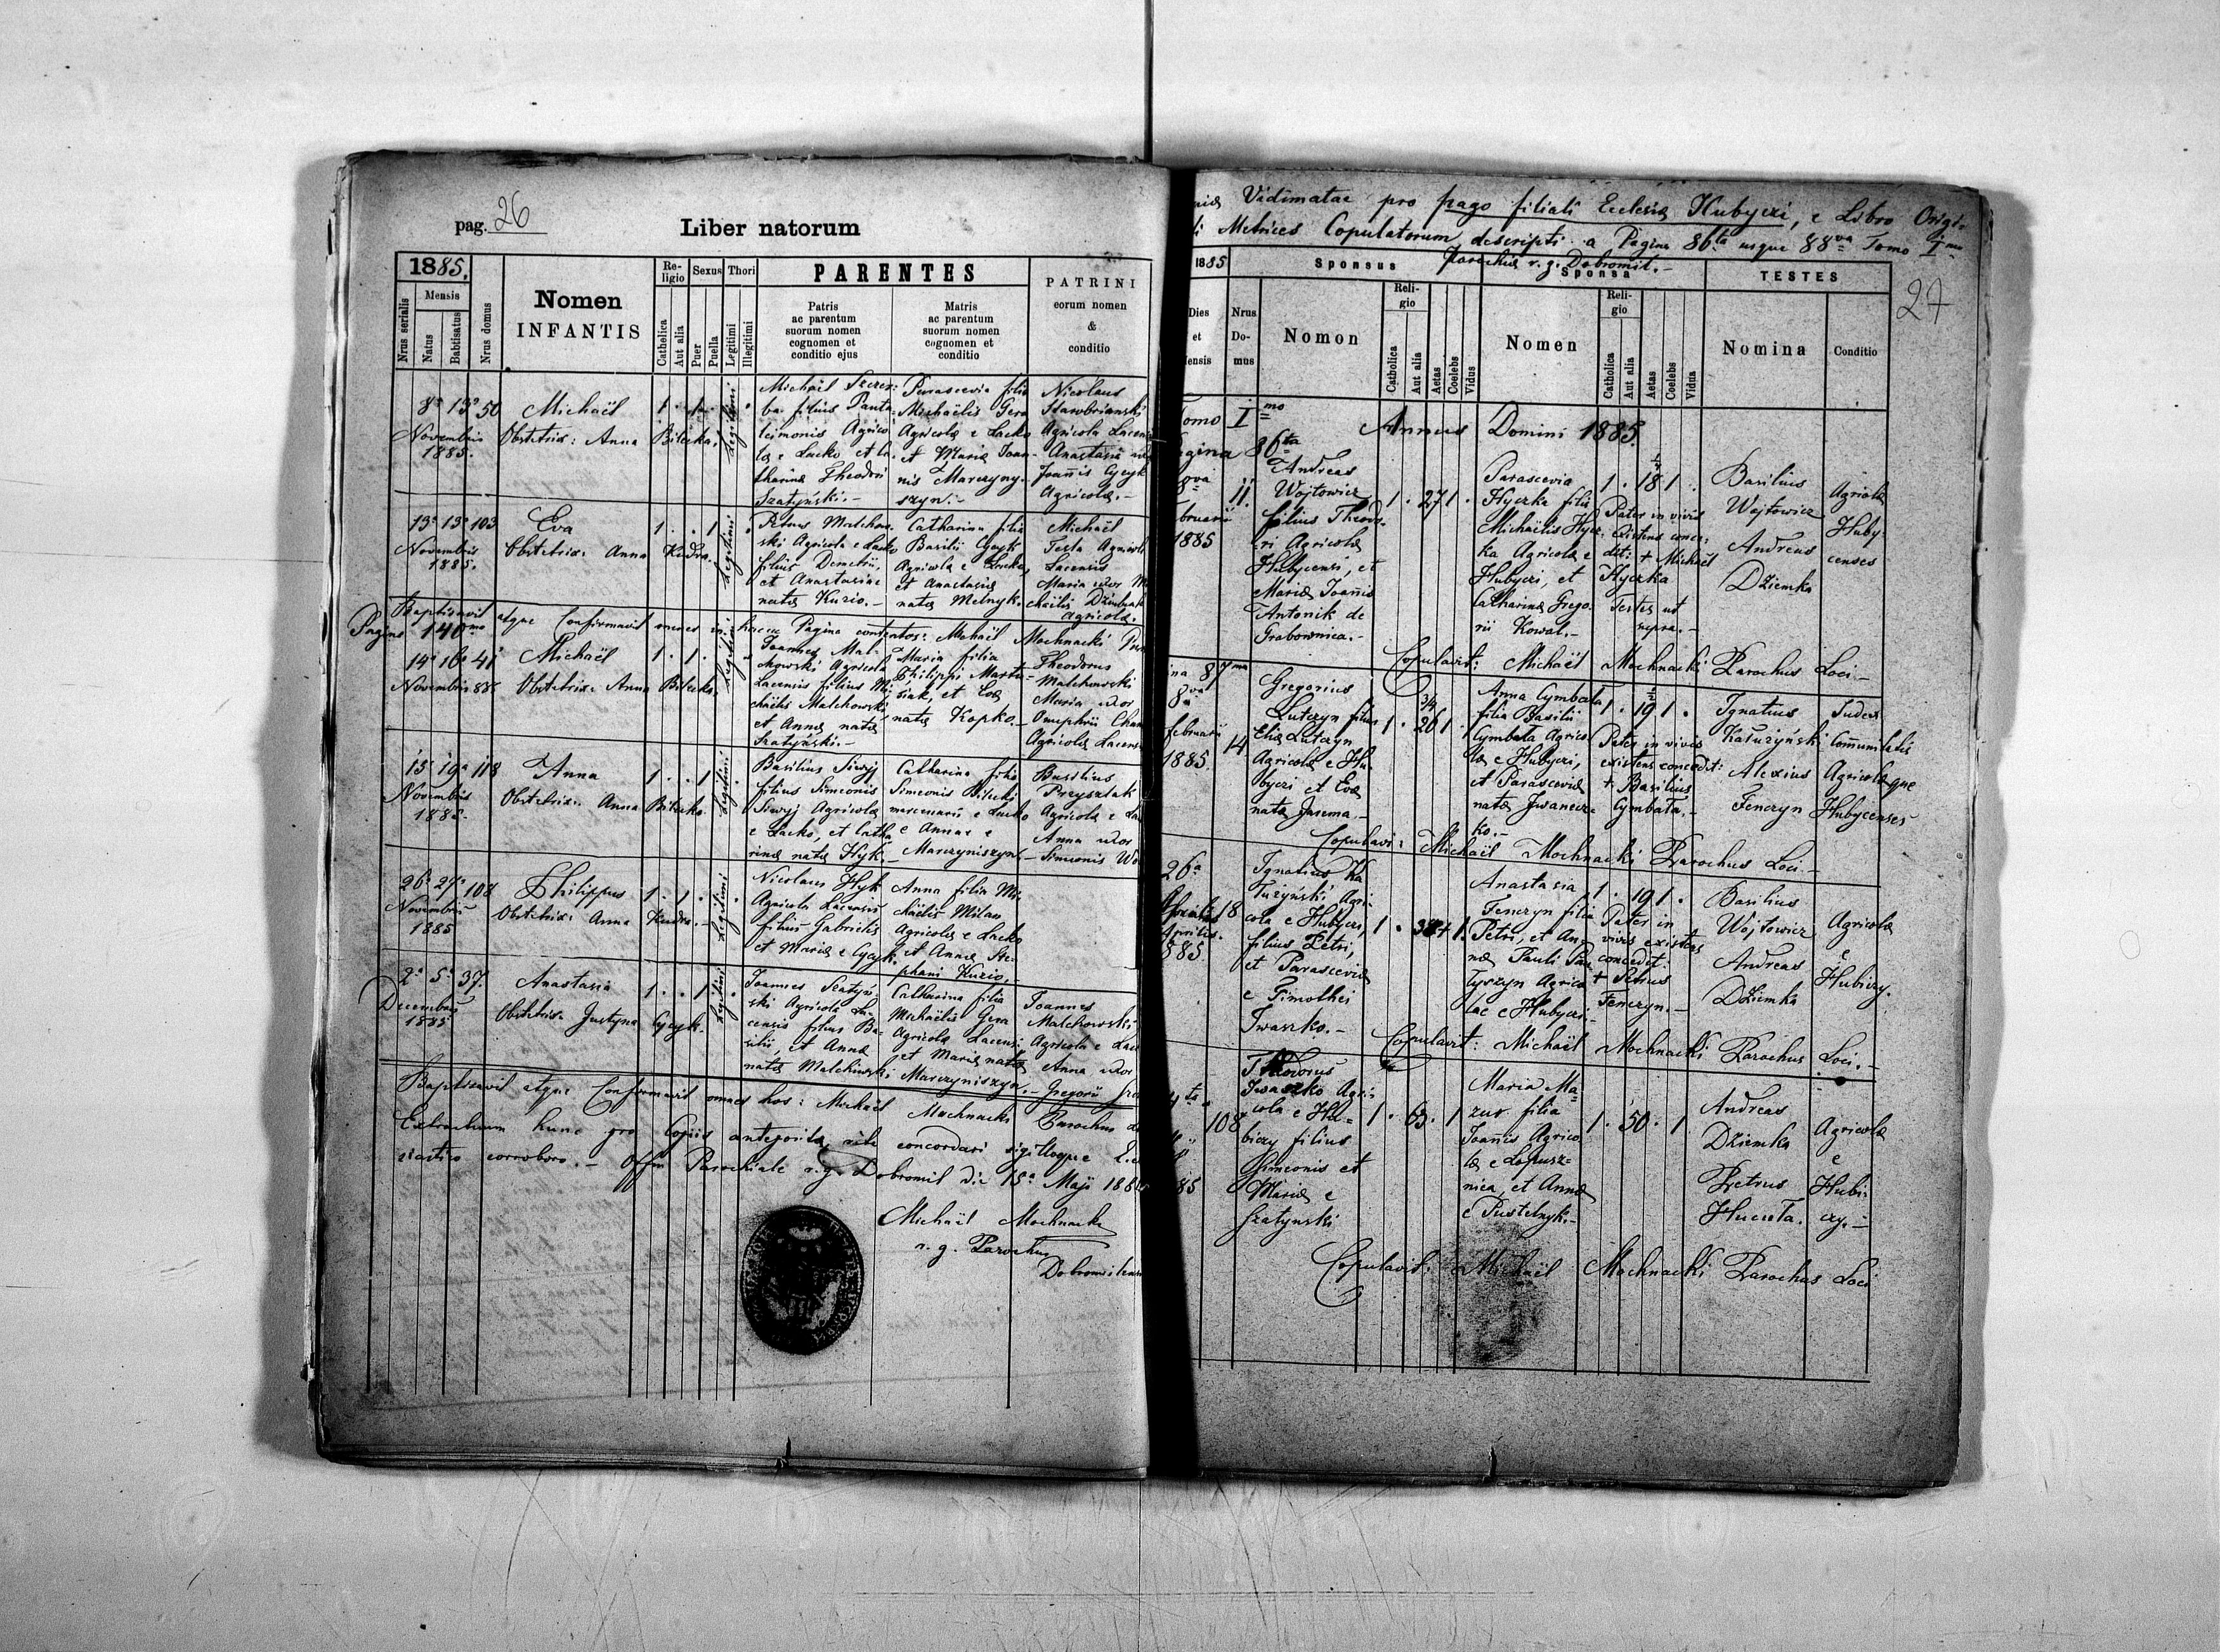 pag. 26
Liber natorum
1885.
Mensis
Nrus serialis
Natus
Babtisatus
Nrus domus
Nomen
INFANTIS
Religio
Catholica
Aut alia
Sexus
Puer
Puella
Thori
Legitimi
Illegitimi
PARENTES
Patris
ac parentum
suorum nomen
cognomen et
conditio ejus
Matris
ac parentum
suorum nomen
cognomen et
conditio
PATRINI
eorum nomen
&
conditio
8a 13a 50
Novembris
1885.
Michaël
Obstetrix: Anna Bilecka.
1. 1.
Legitimi
Michaël
ba filius Panta-
leimonis Agrico-
lae e Lacko et Ca-
tharinae Theodori
Szatyński.-
Parascevia filia
Michaëlis Gera
Agricolae e Lacko
et Mariae Joan-
nis Marczyny-
szyn.-
Nicolaus
Agricola
Anastasia
Joannis Gycyk
Agricolae.-
13a 13a 103
Novembris
1885.
Eva
Obstetrix: Anna Kudra.
1. . 1
Legitimi
Petrus Malchow-
ski Agricola e Lacko
filius Demetrii,
et Anastasiae
natae Kuzio.-
Catharina filia
Basilii Gycyk
Agricolae e Lacko,
et Anastasiae
natae Melnyk.
Michaël
Testa Agricola
Lacensis
Maria uxor
chaëlis
Agricolae.
Baptisavit atque Confirmavit omnes in hacce Pagina contentos: Michaël Mochnacki
Pagina 140ma
14a 16a 41
Novembris 885
Michaël
Obstetrix: Anna Bilecka.
1. 1.
Legitimi
Joannes Mal-
chowski Agricola
Lacensis filius Mi-
chaëlis Malchowski
et Annae natae
Szatyński.-
Maria filia
Philippi Marty-
siak, et Evae
natae Kopko.-
Theodorus
Malchowski
Maria uxor
Onuphrii
Agricolae
15a 19a 118
Novembris
188
Anna
Obstetrix: Anna Bilecka.
1. . 1
Legitimi
Basilius Siwyj
filius Simeonis
Siwyj Agricolae
e Lacko, et Catha-
rinae natae Hyk.-
Catharina filia
Simeonis Bilecki
mercenarii e Lacko
e Annae e
Marczyniszyn.-
Basilius
Przysztak
Agricola e
Anna uxor
Simeonis
26a 27a 108
Novembris
1885
Philippus
Obstetrix: Anna Kudra.-
1. 1.
Legitimi
Nicolaus Hyk
Agricola Lacensis
filius Gabrielis
et Mariae e Gycyk.
Anna filia Mi-
chaëlis Milan
Agricolae e Lacko
et Annae Ste-
phani Kuzio.-
2a 5a 37.
Decembris
1885
Anastasia
Obstetrix: Justyna Gycyk.
1. . 1
Legitimi
Joannes Szatyń-
ski Agricola La-
censis filius Ba-
silii, et Annae
natae Malchowski
Catharina filia
Michaëlis Gera
Agricolae Lacensis
et Mariae natae
Marczyniszyn.-
Joannes
Malchowski
Agricola e
Anna uxor
Gregorii
Baptisavit atque Confirmavit omnes hos: Michaël Mochnacki Parochus
Extractum hunc pro Copiis anteposita rite concordari sigilloque
siastico corroboro.- Offm Parochiale r. g. Dobromil die 15a Maji
Michaël Mochnacki
r. g. Parochus
Vidimatae pro pago filiali Ecclesiae Hubyczi, e Libro Origi-
Metrices Copulatorum descripti a Pagina 86ta usque 88va Tomo Imo
Parochiae r. g. Dobromil.-
27
1885
Dies
et
ensis
Nrus
Do-
mus
Sponsus
Nomon
Religio
Catholica
Aut alia
Aetas
Coelebs
Vidus
Sponsa
Nomen
Religio
Catholica
Aut alia
Aetas
Coelebs
Vidua
TESTES
Nomina
Conditio
Tomo Imo
Annus Domini 1885
gina 86ta
8va
bruarii
1885
11.
Andreas
Wojtowicz
filius Theodo-
ri Agricolae
Hubycensi, et
Mariae Joannis
Antonik de
Grabownica.-
1. 27 1.
Parascevia
Hyczka filia
Michaëlis Hycz-
ka Agricolae e
Hubyczi, et
Catharinae Grego-
rii Kowal.-
1. 18 1.
Pater in vivis
existens conce-
dit: + Michaël
Hyczka
Testes ut
supra.-
Basilius
Wojtowicz
Andreas
Dziemka
Agricolae
Huby-
censes
Copulavit: Michaël Mochnacki Parochus Loci.-
ina 87ma
8va
februarii
1885.
14
Gregorius
Lutczyn filius
Eliae Lutczyn
Agricolae e Hu-
byczi et Evae
natae Jarema.-
1. 26 1.
Anna Cymbała
filia Basilii
Cymbała Agrico-
lae e Hubyczi,
et Parasceviae
natae Iwanecz-
ko.-
1. 19 1.
Pater in vivis
existens concedit:
+ Basilius
Cymbała.-
Ignatius
Kałużyński
Alexius
Fenczyn
Judex
Com̄unitatis
Agricolaeque
Hubycenses
Copulavi: Michaël Mochnacki Parochus Loci.-
26a
Aprilis.
885.
18
Ignatius Ka-
łużyński Agri-
cola e Hubyczi,
filius Petri,
et Parasceviae
e Timothei
Iwaszko.-
Anastasia
Fenczyn filia
Petri, et An-
nae Pauli Pan-
tyszyn Agrico-
lae e Hubyczi.-
1. 19 1.
Pater in
vivis existens
concedit:
+ Petrus
Fenczyn.-
Basilius
Wojtowicz
Andreas
Dziemka
Agricolae
e
Hubiczy.
Copulavit: Michaël Mochnacki Parochus Loci.-
4ta
85
108
Theodorus
Iwaszko Agri-
cola e Hu-
biczy filius
Simeonis et
Mariae e
Szatynski
1. 63. 1
Maria Ma-
zur filia
Joannis Agrico-
lae e Łopusz-
nica, et Annae
e Pustelnyk.-
1. 50. 1.
Andreas
Dziemka
Petrus
Huculа.
Agricolae
e
Hubi-
czy.-
Copulavit: Michaël Mochnacki Parochus Loci